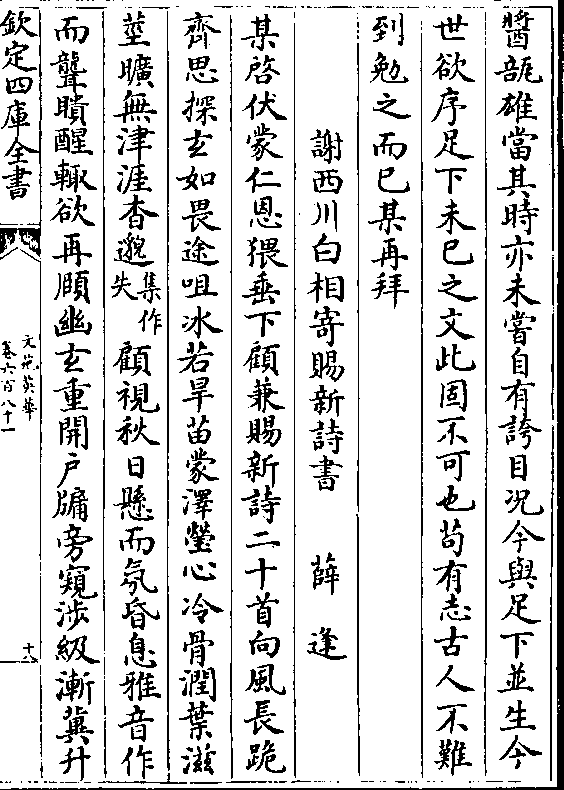 醬瓿雄當其時亦未嘗自有誇目况今與足下並生今
世欲序足下未巳之文此固不可也茍有志古人不難
到勉之而巳某再拜
謝西川白相寄賜新詩書　薛逢
某啓伏蒙仁恩猥垂下顧兼賜新詩二十首向風長跪
齊思探玄如畏途咀冰若旱苗蒙澤瑩心冷骨潤葉滋
莖曠無津涯杳邈集作失顧視秋日懸而氛昏息雅音作
而聾聵醒輙欲再頋幽玄重開户牖旁窺涉級漸冀升
欽定四庫全書
文苑英華
卷六百八十一
十八